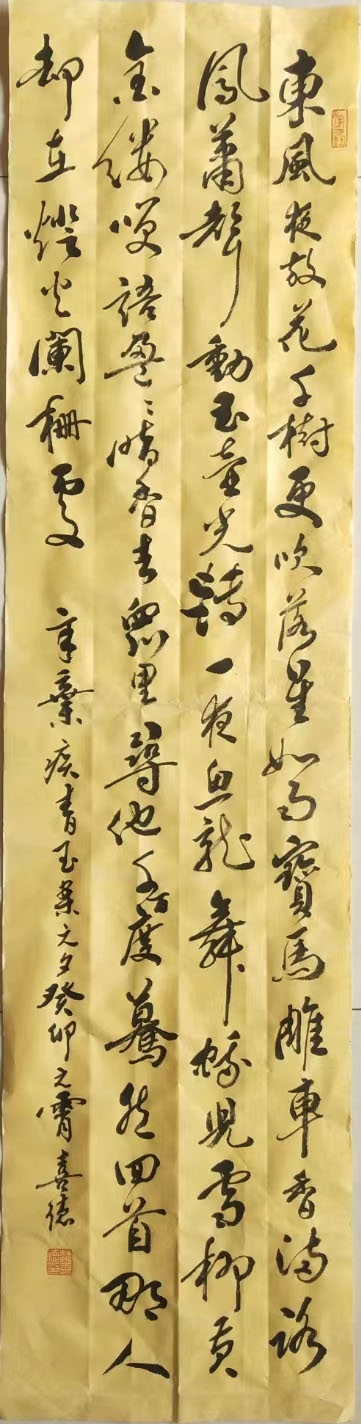 東風夜放花千樹更吹落星如雨寳馬雕車香満路
鳳蕭聲動玉壶光轉一夜魚龍舞蛾兒雪柳黄
金缕笑語盈〻暗香去衆里尋他千百度驀然回首那人
却在燈火闌栅處
辛棄疾青玉案元夕癸卯元宵喜德